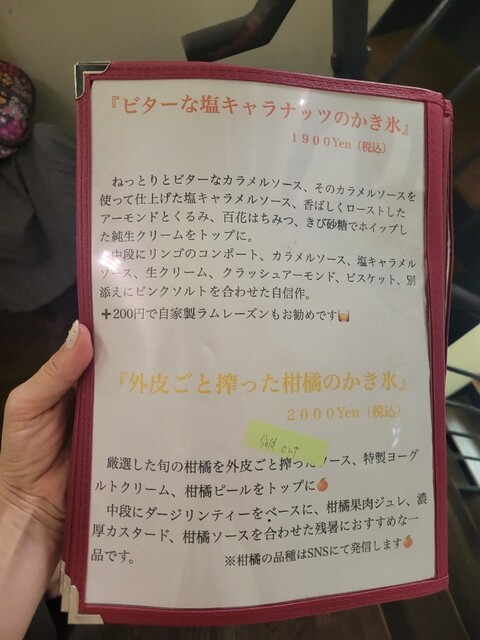 『ビターな塩キャラナッツのかき氷』
1900Yen（税込）
ねっとりとビターなカラメルソース、そのカラメルソースを
使って仕上げた塩キャラメルソース、香ばしくローストした
アーモンドとくるみ、百花はちみつ、きび砂糖でホイップし
た純生クリームをトップに。
中段にリンゴのコンポート、カラメルソース、塩キャラメル
ソース、生クリーム、クラッシュアーモンド、ビスケット、別
添えにピンクソルトを合わせた自信作。
+200円で自家製ラムレーズンもお勧めです
『外皮ごと搾った柑橘のかき氷』
2000Yen（税込）
Sold out
厳選した旬の柑橘を外皮ごと搾ったソース、特製ヨーグ
ルトクリーム、柑橘ピールをトップに🍊
中段にダージリンティーをベースに、柑橘果肉ジュレ、濃
厚カスタード、柑橘ソースを合わせた残暑におすすめな一
品です。 ※柑橘の品種はSNSにて発信します🍊